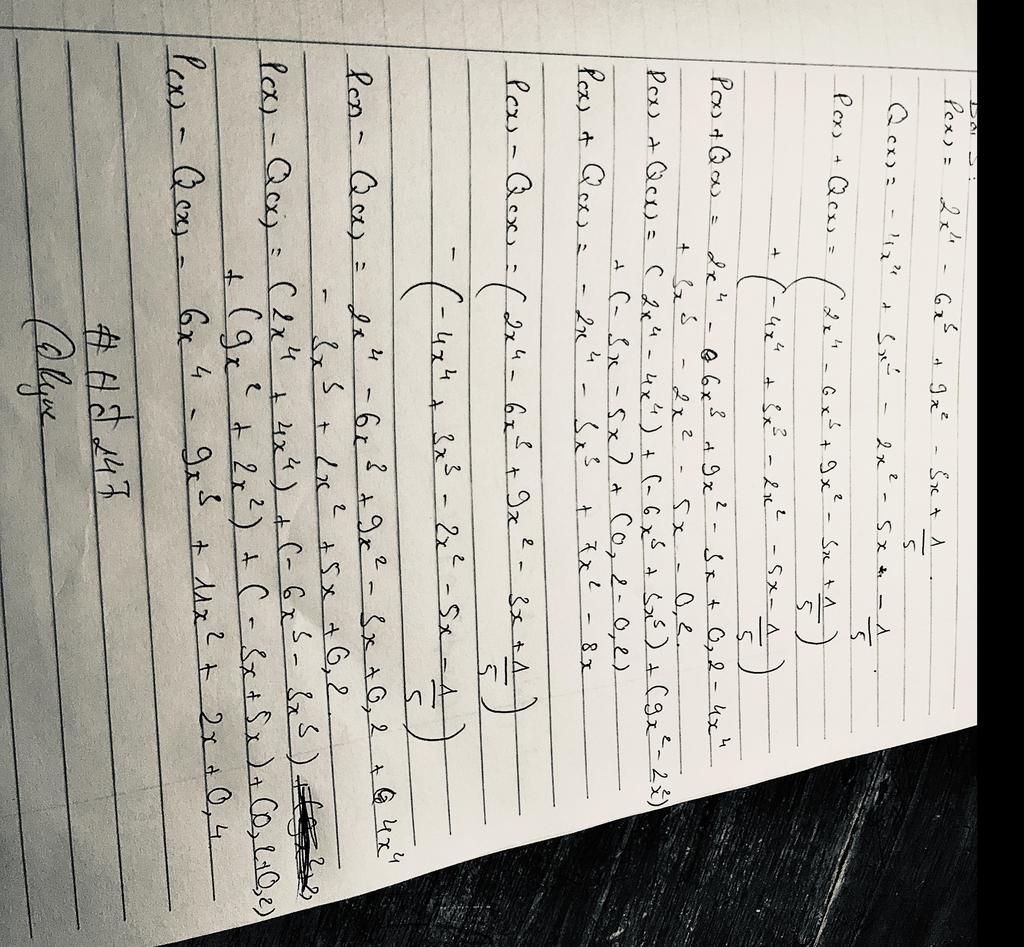 Bài 3:
P(x) = 2x⁴ - 6x³ + 9x² - 3x + 1/5.
Q(x) = -4x⁴ + 3x³ - 2x² - 5x - 1/5.
P(x) + Q(x) = (2x⁴ - 6x³ + 9x² - 3x + 1/5)
+ (-4x⁴ + 3x³ - 2x² - 5x - 1/5)
P(x) + Q(x) = 2x⁴ - 6x³ + 9x² - 3x + 0,2 - 4x⁴
+ 3x³ - 2x² - 5x - 0,2.
P(x) + Q(x) = (2x⁴ - 4x⁴) + (-6x³ + 3x³) + (9x² - 2x²)
+ (-3x - 5x) + (0,2 - 0,2)
P(x) + Q(x) = -2x⁴ - 3x³ + 7x² - 8x
P(x) - Q(x) = (2x⁴ - 6x³ + 9x² - 3x + 1/5)
- (-4x⁴ + 3x³ - 2x² - 5x - 1/5)
P(x) - Q(x) = 2x⁴ - 6x³ + 9x² - 3x + 0,2 + 4x⁴
- 3x³ + 2x² + 5x + 0,2.
P(x) - Q(x) = (2x⁴ + 4x⁴) + (-6x³ - 3x³)
+ (9x² + 2x²) + (-3x + 5x) + (0,2 + 0,2)
P(x) - Q(x) = 6x⁴ - 9x³ + 11x² + 2x + 0,4